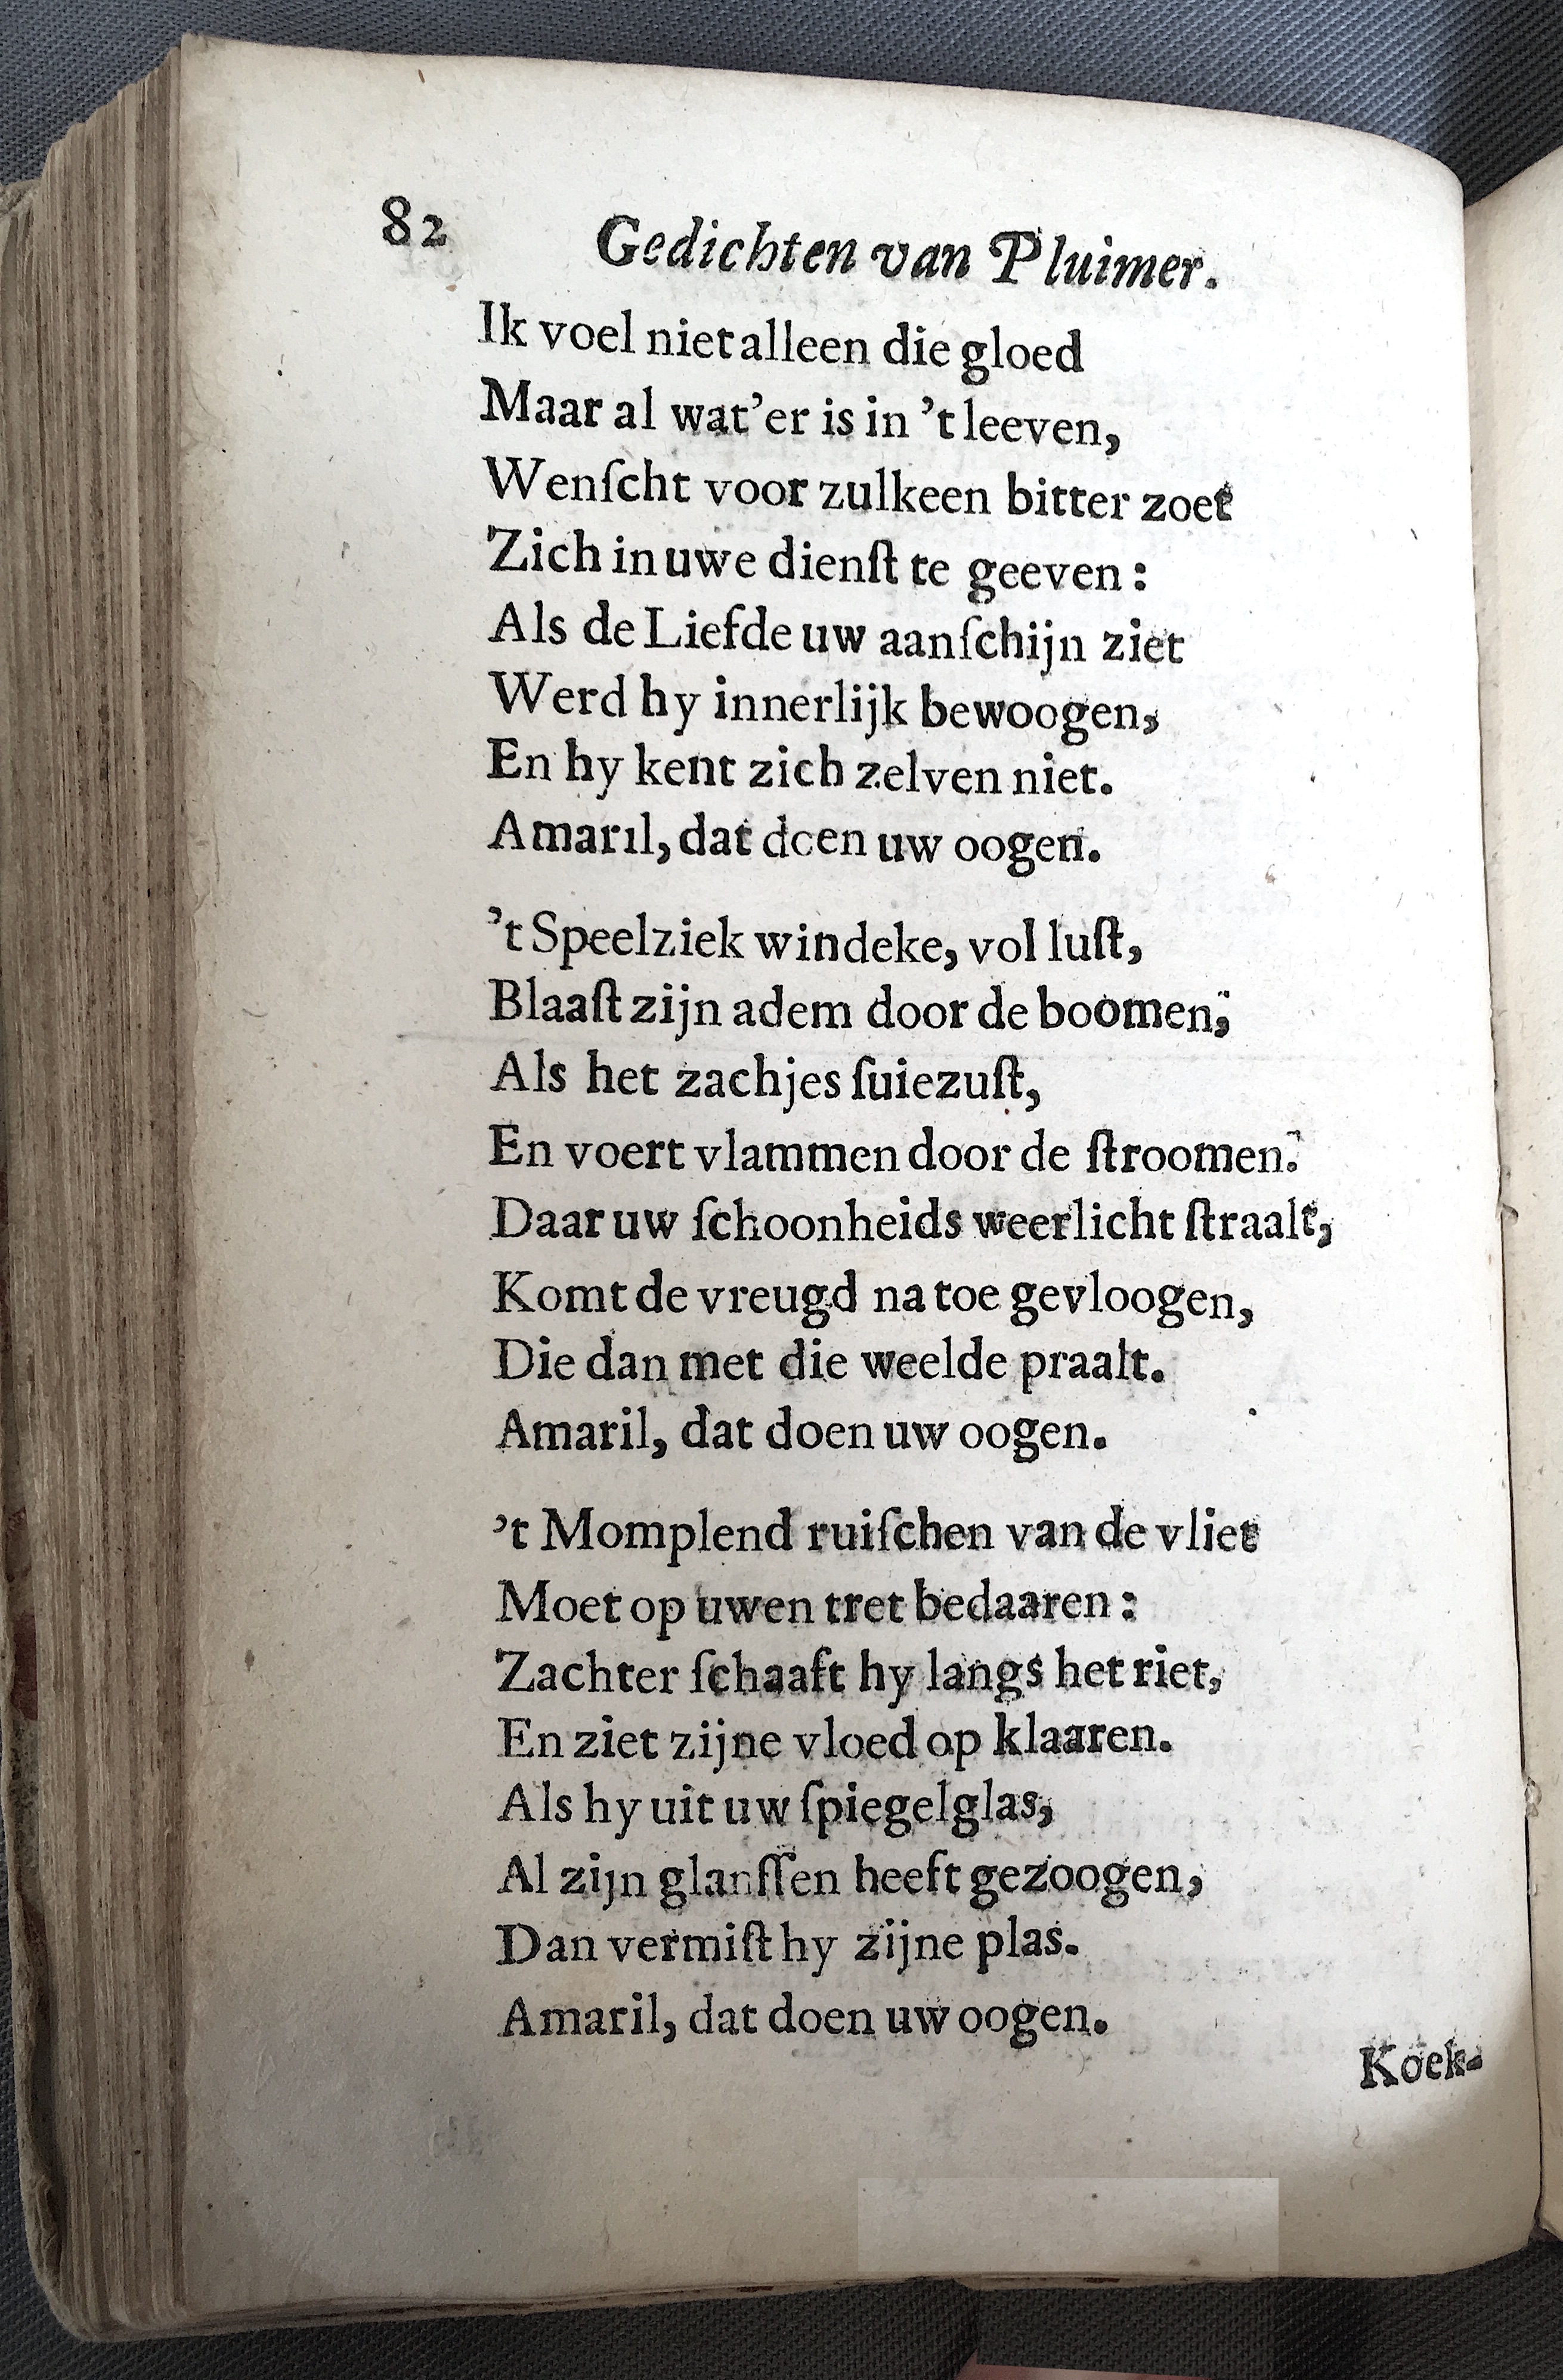 82 Gedichten van Pluimer.
Ik voel niet alleen die gloed
Maar al wat'er is in 't leeven,
Wenſcht voor zulk een bitter zoet
Zich in uwe dienſt te geeven:
Als de Liefde uw aanſchijn ziet
Werd hy innerlijk bewoogen,
En hy kent zich zelven niet.
Amaril, dat doen uw oogen.
't Speelziek windeke, vol luſt,
Blaaſt zijn adem door de boomen,
Als het zachjes ſuiezuſt,
En voert vlammen door de ſtroomen.
Daar uw ſchoonheids weerlicht ſtraalt,
Komt de vreugd na toe gevloogen,
Die dan met die weelde praalt.
Amaril, dat doen uw oogen.
't Momplend ruiſchen van de vliet
Moet op uwen tret bedaaren:
Zachter ſchaaft hy langs het riet,
En ziet zijne vloed op klaaren.
Als hy uit uw ſpiegelglas,
Al zijn glanſſen heeft gezoogen,
Dan vermiſt hy zijne plas.
Amaril, dat doen uw oogen.
Koek-